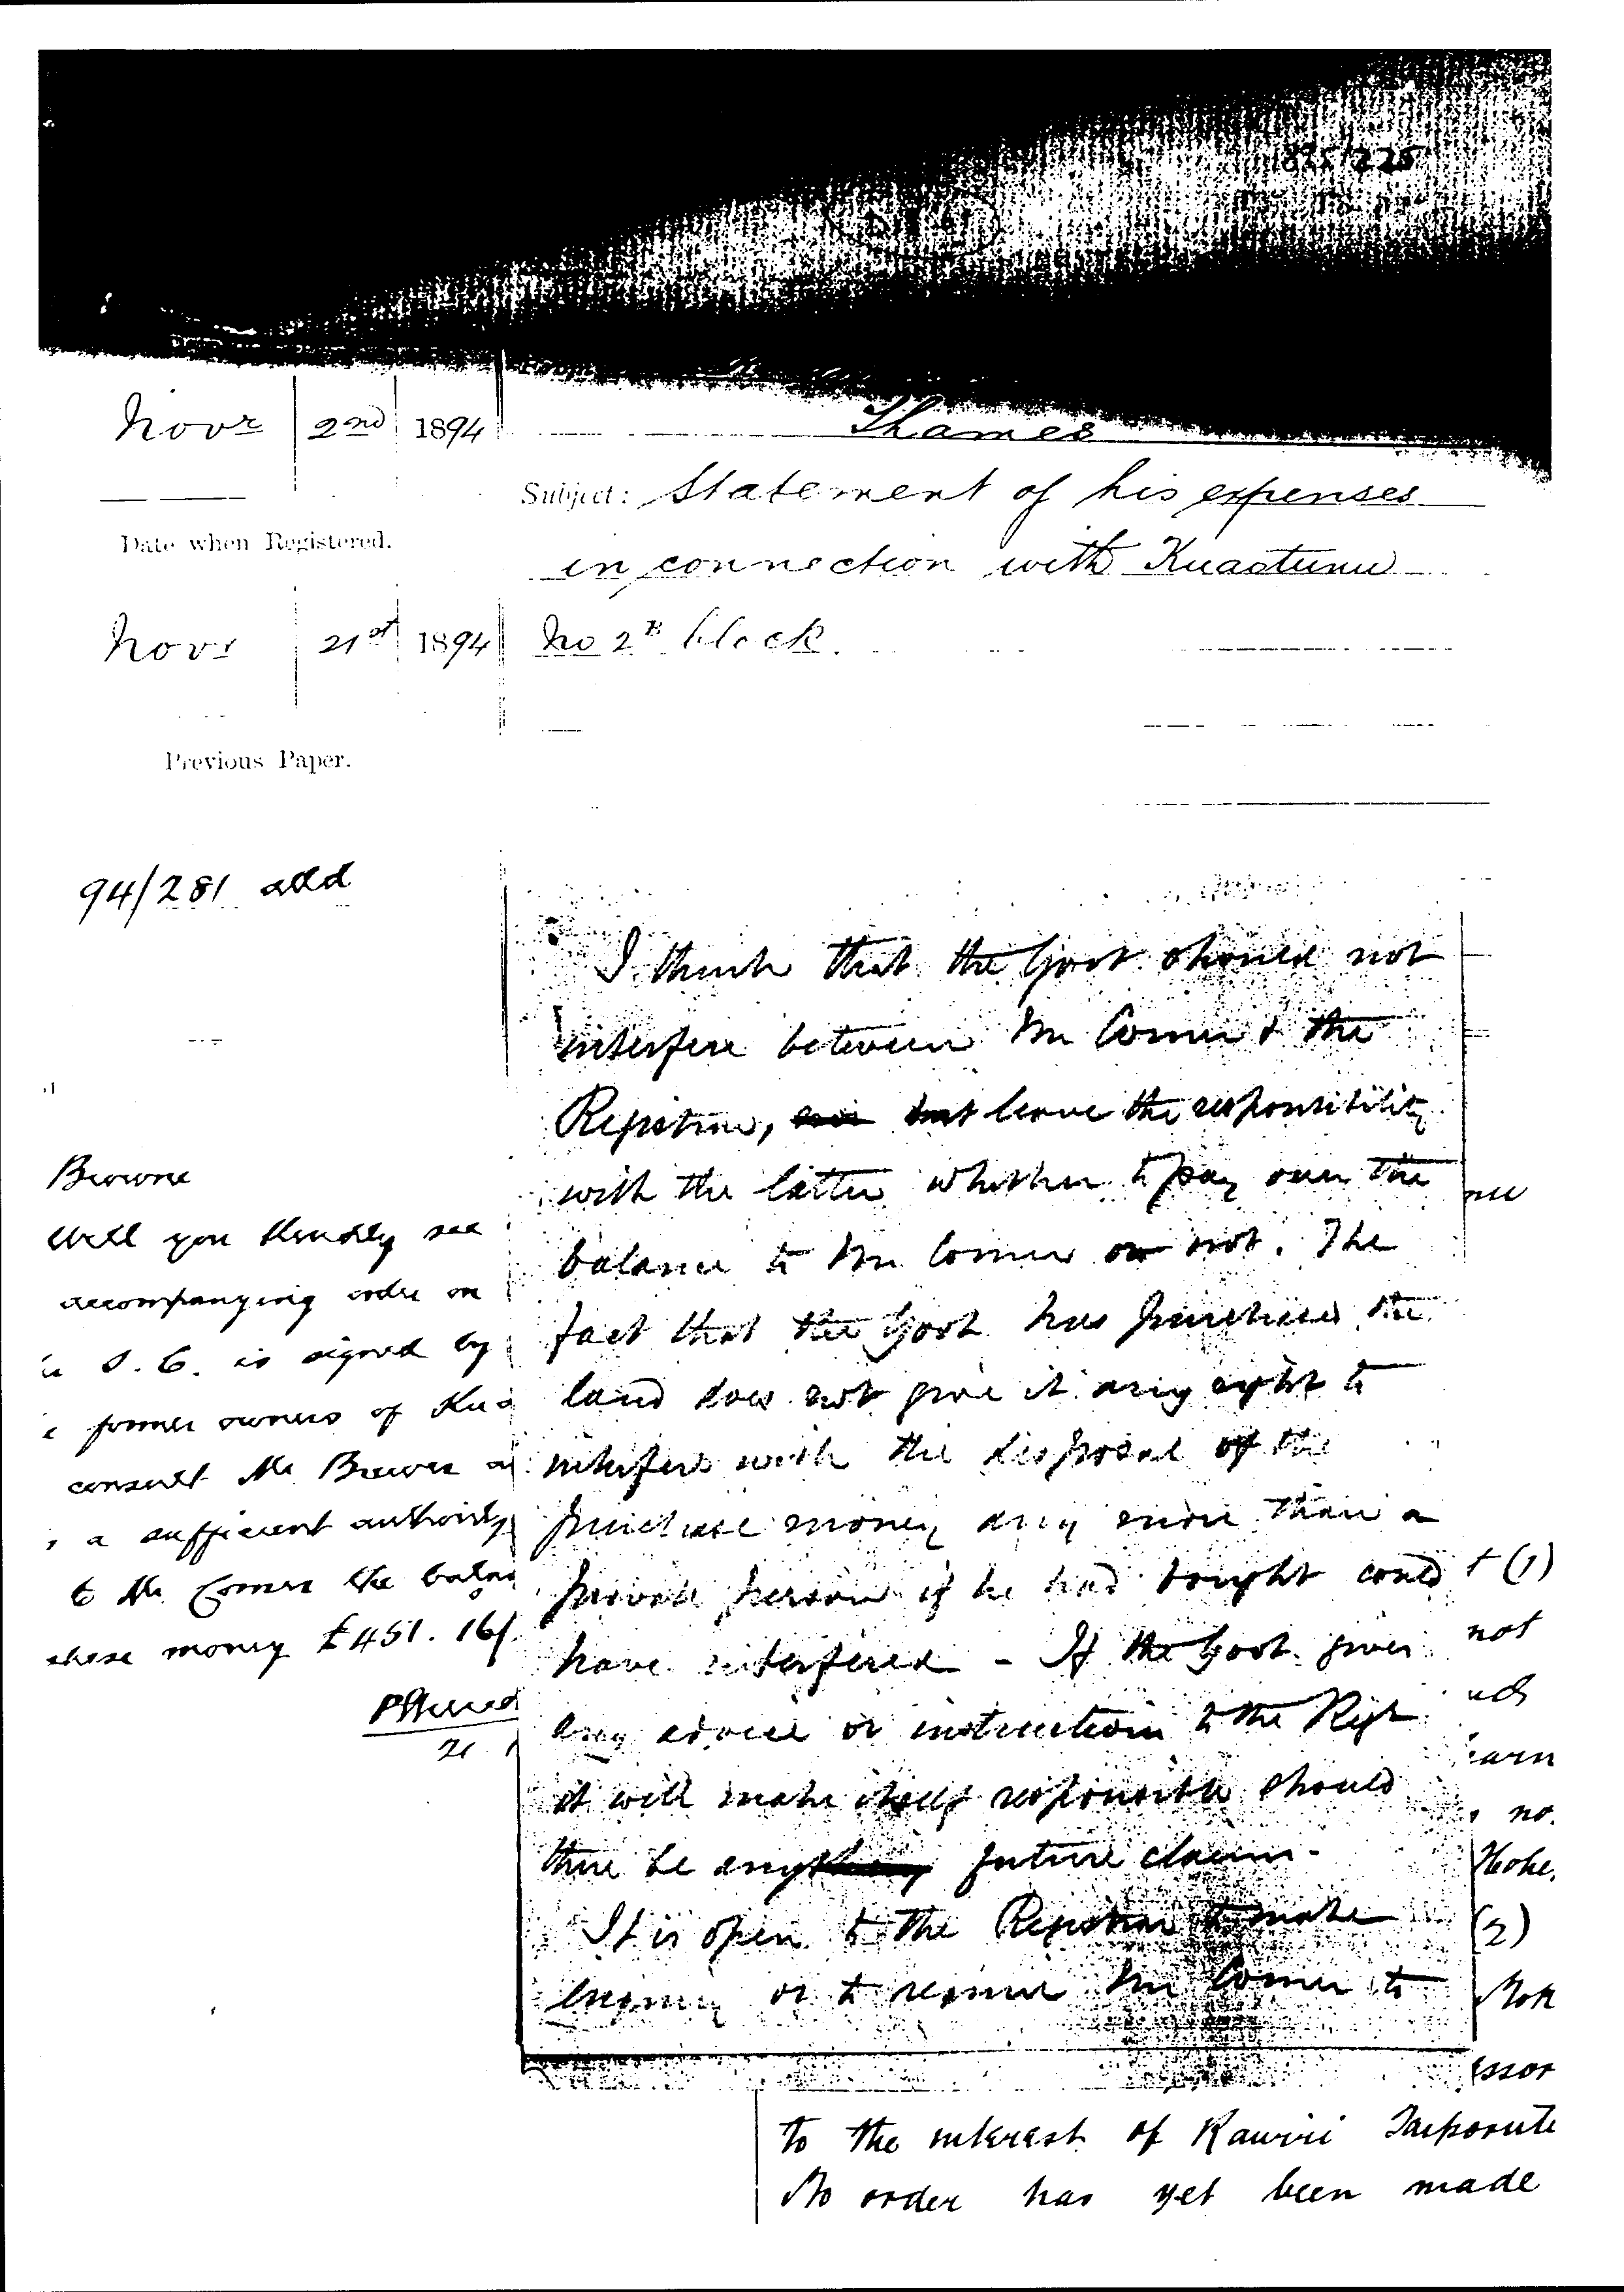 1895/225
Novr 2nd 1894
Thames
Subject: Statement of his expenses
in connection with Kuaotunu
No 2B block.
Date when Registered.
Novr 21st 1894
Previous Paper.
94/281 attd
I think that the Govt should not
interfere between Mr Comer & the
Registrar, but leave the responsibility
with the latter whether to pay over the
balance to Mr Comer or not. The
fact that the Govt has purchased the
land does not give it any right to
interfere with the disposal of the
purchase money any more than a
private person if he had bought could
have interfered - If the Govt gives
any advice or instruction to the Regr
it will make itself responsible should
there be any future claim.
It is open to the Registrar to make
enquiry or to require Mr Comer to
Browne
Will you kindly see
accompanying order on
S. C. is signed by
former owners of Kua
consult Mr Brewer
a sufficient authority
to Mr Comer the balan
chase money £451. 16/.
21
t (1)
not
no.
Hohe.
(2)
essor
to the interest of Rawiri Taiporute
No order has yet been made